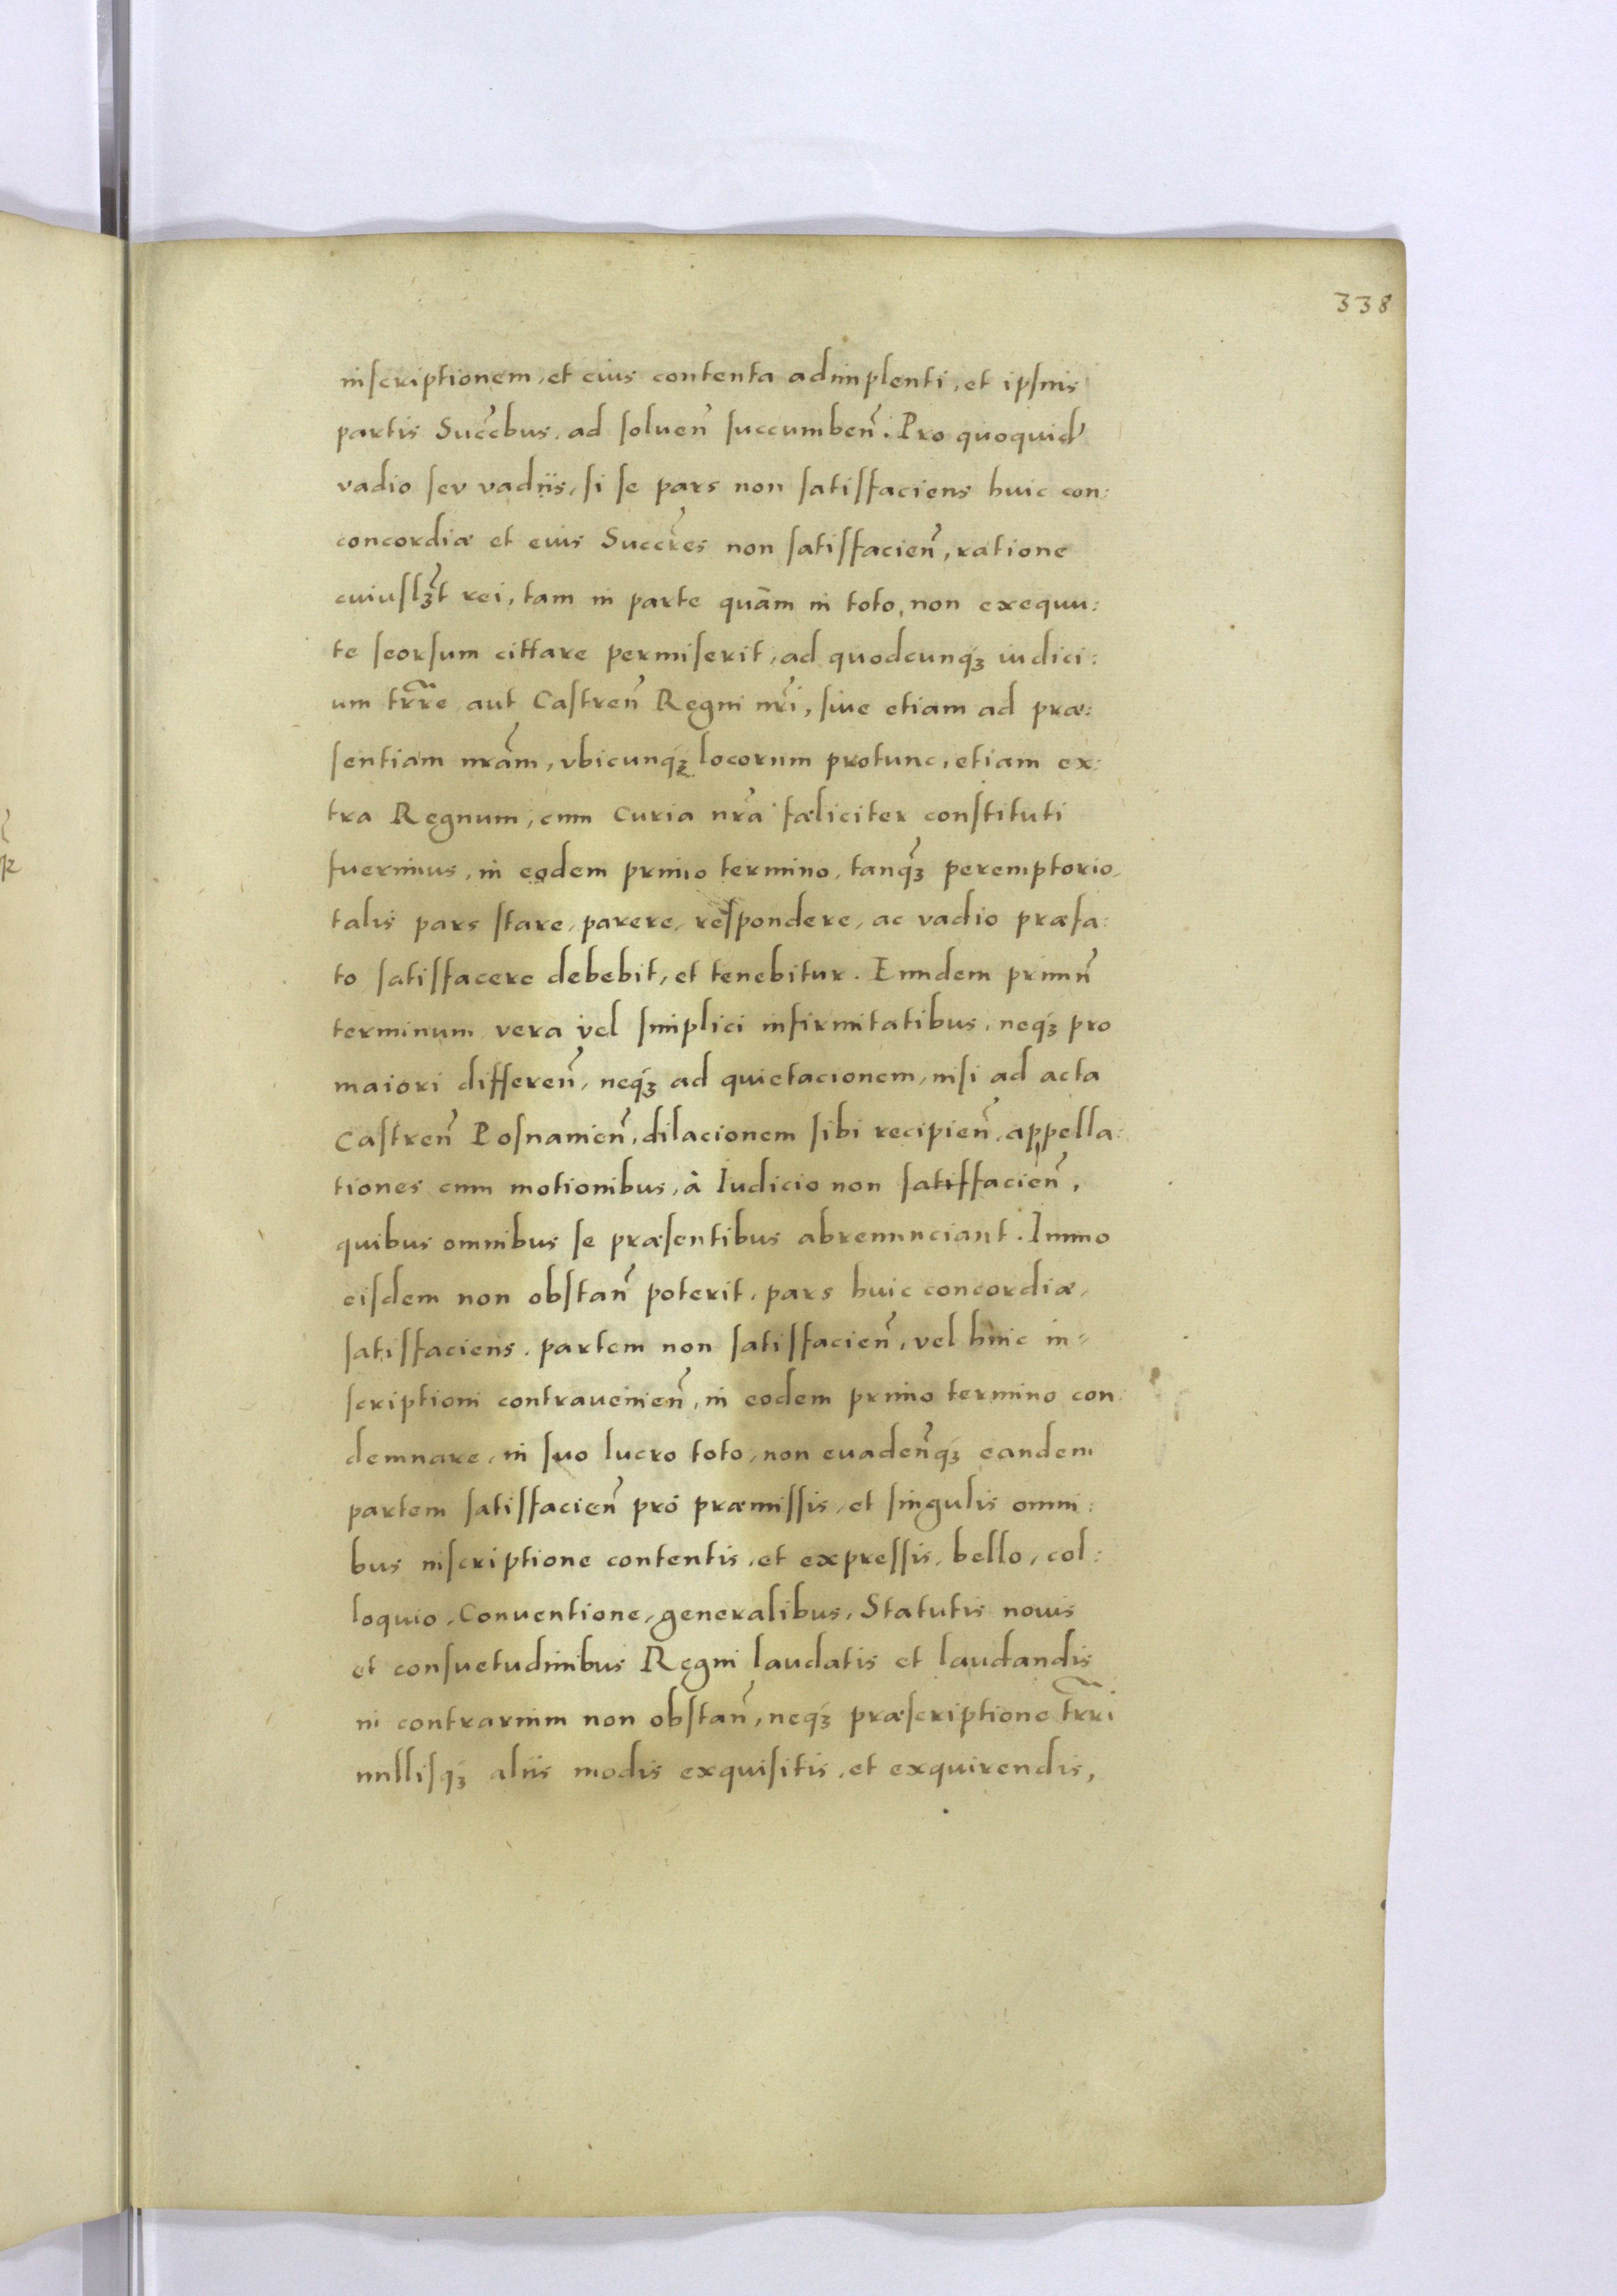 338
inscriptionem, et eius contenta adimplenti, et ipsius
partis Succ̃bus, ad soluen̄ succumben̄. Pro quoquid̃
vadio seu vadiis, si se pars non satisfaciens huic con:
concordiæ et eius Succr̃es non satisfacien̄, ratione
cuiuslꝫt rei, tam in parte quàm in toto, non exequu:
te seorsum cittare permiserit, ad quodcunqꝫ iudici:
um tr̃re aut Castren̄ Regni nr̃i, siue etiam ad præ:
sentiam nr̃am, vbicunqꝫ locorum protunc, etiam ex:
tra Regnum, cum Curia nr̃a fæliciter constituti
fuerimus, in eodem primo termino, tanqꝫ peremptorio,
talis pars stare, parere, respondere, ac vadio præfa:
to satisfacere debebit, et tenebitur. Eundem primū
terminum vera vel simplici infirmitatibus, neqꝫ pro
maiori differen̄, neqꝫ ad quietacionem, nisi ad acta
Castren̄ Posnanien̄, dilacionem sibi recipien̄, appella:
tiones cum motionibus, à Iudicio non satisfacien̄,
quibus omnibus se præsentibus abrenunciant. Immo
eisdem non obstan̄ poterit, pars huic concordiæ,
satisfaciens, partem non satisfacien̄, vel huic in=
scriptioni contrauenien̄, in eodem primo termino con
demnare, in suo lucro toto, non euaden̄qꝫ eandem
partem satisfacien̄ prò præmissis, et singulis omni:
bus inscriptione contentis, et expressis, bello, col:
loquio, Conuentione, generalibus, Statutis nouis
et consuetudinibus Regni laudatis et laudandis
in contrarium non obstan̄, neqꝫ præscriptione tr̃ri
nullisqꝫ aliis modis exquisitis, et exquirendis,